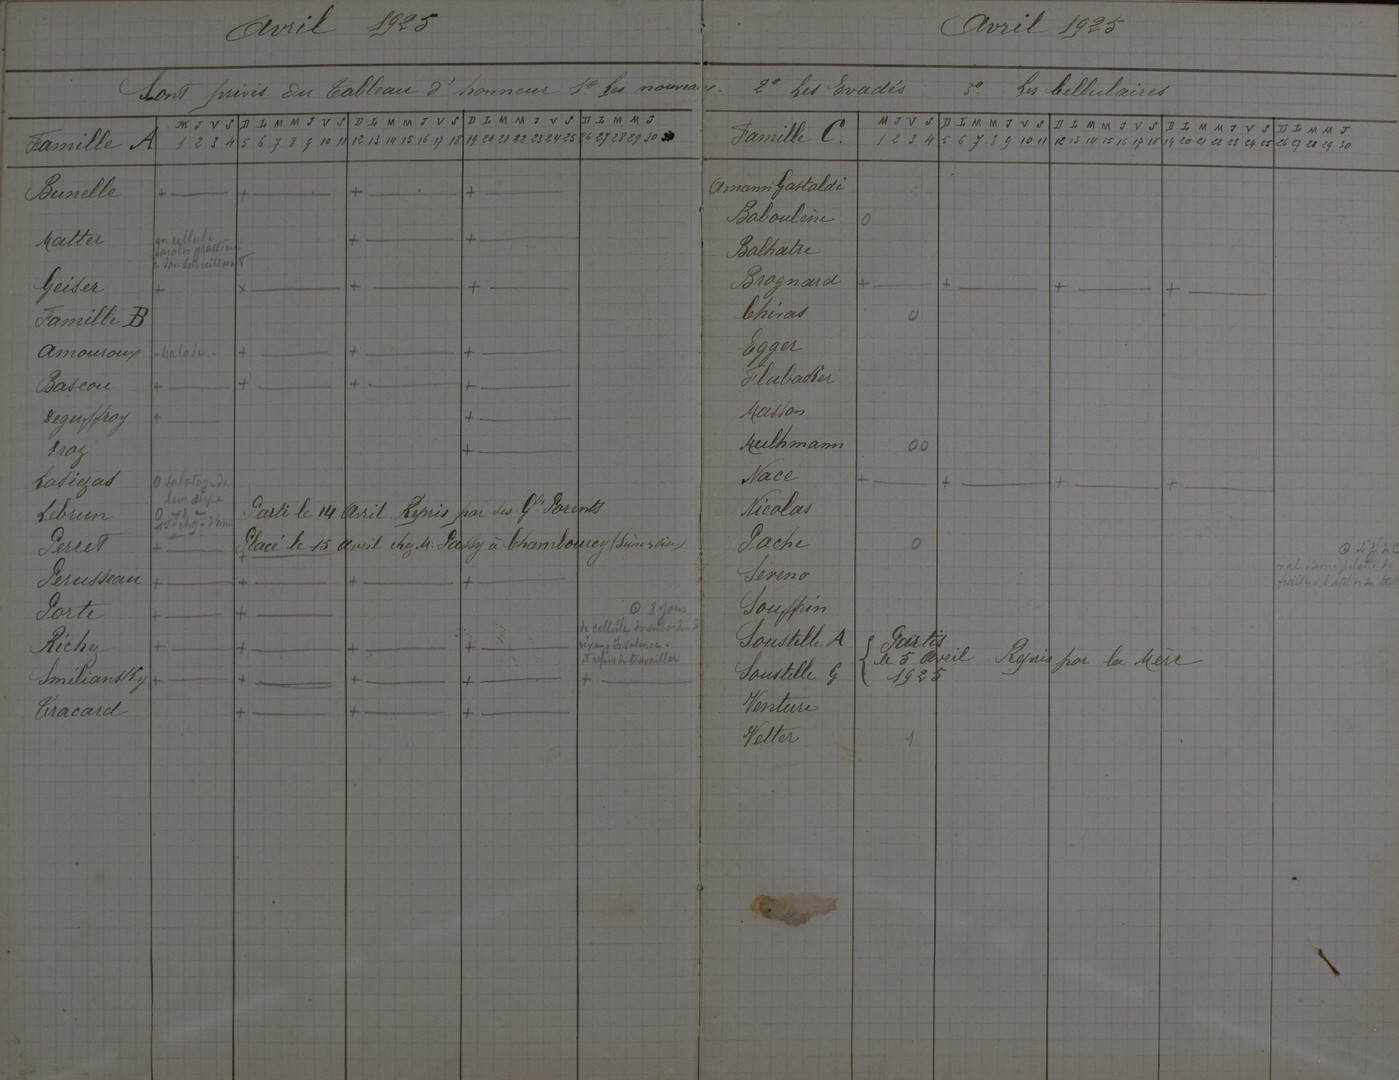 Avril 1925
Sont privés du Tableau d'honneur 1° Les nouveaux.
Famille A
M J V S D L M M J V S D L M M J V S D L M M J V S D L M M J
1 2 3 4 5 6 7 8 9 10 11 12 13 14 15 16 17 18 19 20 21 22 23 24 25 26 27 28 29 30
Bunelle + + + +
Malter en cellule + +
à son surveillant
Geiser + x + +
Famille B
Amouroux Malade + + +
Bascou + + + +
+ +
+
O
Lebrun O Parti le 14 Avril Repris par ses Gds Parents
Perret + Placé le 15 Avril chez M. Passy à Chambourcy (Seine & Oise)
Perusseau + + + +
Porte + + O 8 jours
de cellule
Richy + + + + insolence
et refus de travailler
Smiliansky + + + + +
Tracard + + +
Avril 1925
2° Les Evadés 3° Les Cellulaires
Famille C.
M J V S D L M M J V S D L M M J V S D L M M J V S D L M M J
1 2 3 4 5 6 7 8 9 10 11 12 13 14 15 16 17 18 19 20 21 22 23 24 25 26 27 28 29 30
Amann Gastaldi
Babouléne O
Balhatre
Brognard + + + +
Chiras O
Egger
Masson
Mulhmann OO
Nace + + + +
Nicolas
Pache O
Séréno
Souffrin
Soustelle A Partis
le 5 Avril Repris par la Mère
Soustelle G 1925
Venture
Velter 1